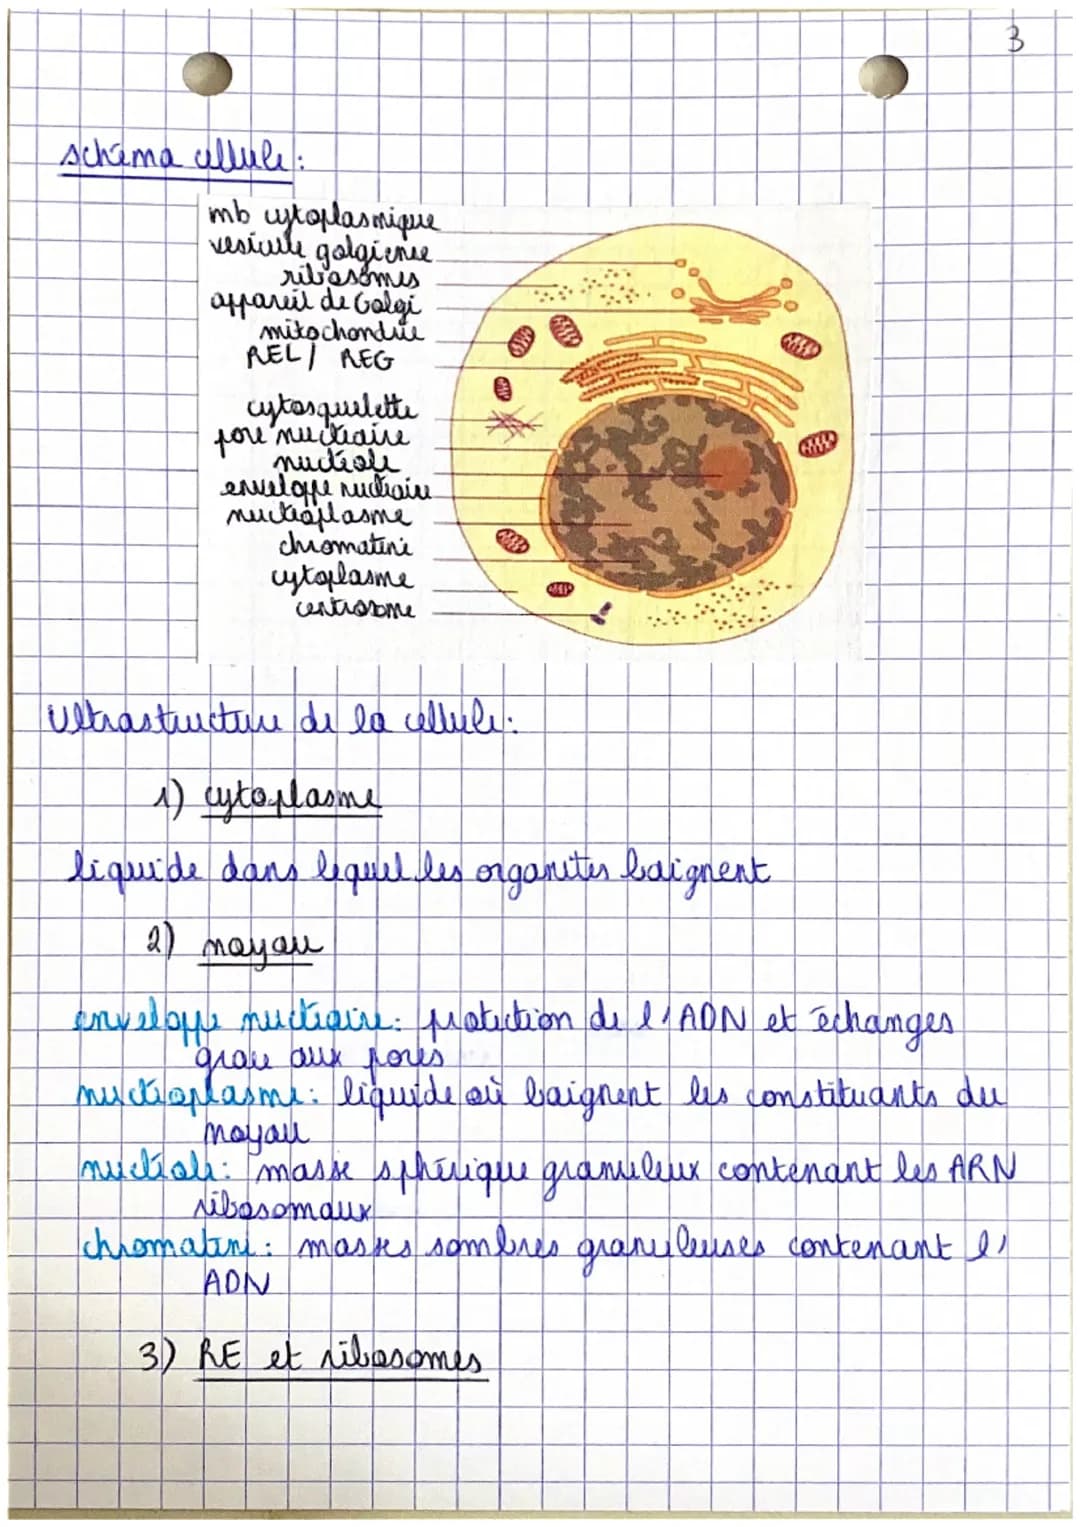 3
schéma cellule:
mb cytoplasmique
vésicule golgienne
ribosomes
appareil de Golgi
mitochondrie
REL / REG
cytosquelette
pore nucléaire
nucléole
enveloppe nucléaire
nucléoplasme
chromatine
cytoplasme
centrosome
Ultrastructure de la cellule:
1) cytoplasme
liquide dans lequel les organites baignent
2) noyau
enveloppe nucléaire: protection de l'ADN et échanges
grâce aux pores
nucléoplasme: liquide où baignent les constituants du
noyau
nucléole: masse sphérique granuleux contenant les ARN
ribosomaux
chromatine: masses sombres granuleuses contenant l'
ADN
3) RE et ribosomes